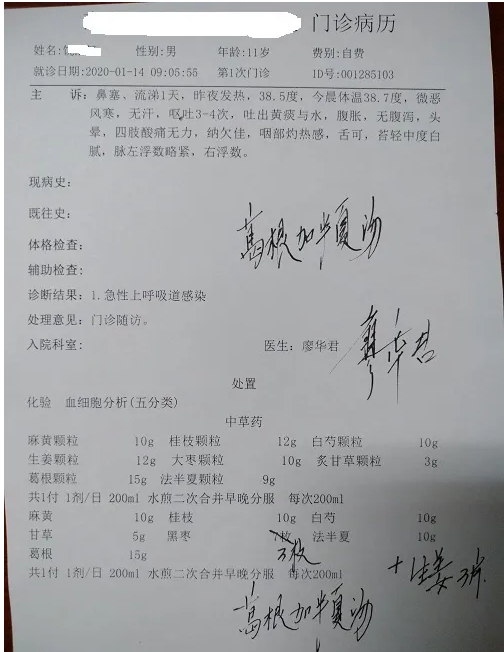 门诊病历
姓名: 性别:男 年龄:11岁 费别:自费
就诊日期:2020-01-14 09:05:55 第1次门诊 ID号:001285103
主 诉:鼻塞、流涕1天,昨夜发热,38.5度,今晨体温38.7度,微恶
风寒,无汗,呕吐3-4次,吐出黄痰与水,腹胀,无腹泻,头
晕,四肢酸痛无力,纳欠佳,咽部灼热感,舌可,苔轻中度白
腻,脉左浮数略紧,右浮数。
现病史:
既往史:
葛根加半夏汤
体格检查:
辅助检查:
诊断结果: 1.急性上呼吸道感染
处理意见: 门诊随访。
入院科室: 医生: 廖华君 廖华君
处置
化验 血细胞分析(五分类)
中草药
麻黄颗粒 10g 桂枝颗粒 12g 白芍颗粒 10g
生姜颗粒 12g 大枣颗粒 10g 炙甘草颗粒 3g
葛根颗粒 15g 法半夏颗粒 9g
共1付 1剂/日 200ml 水煎二次合并早晚分服 每次200ml
麻黄 10g 桂枝 10g 白芍 10g
甘草 5g 黑枣 枚 法半夏 10g
葛根 15g 3枚
共1付 1剂/日 200ml 水煎二次合并早晚分服 每次200ml
+生姜3片
葛根加半夏汤